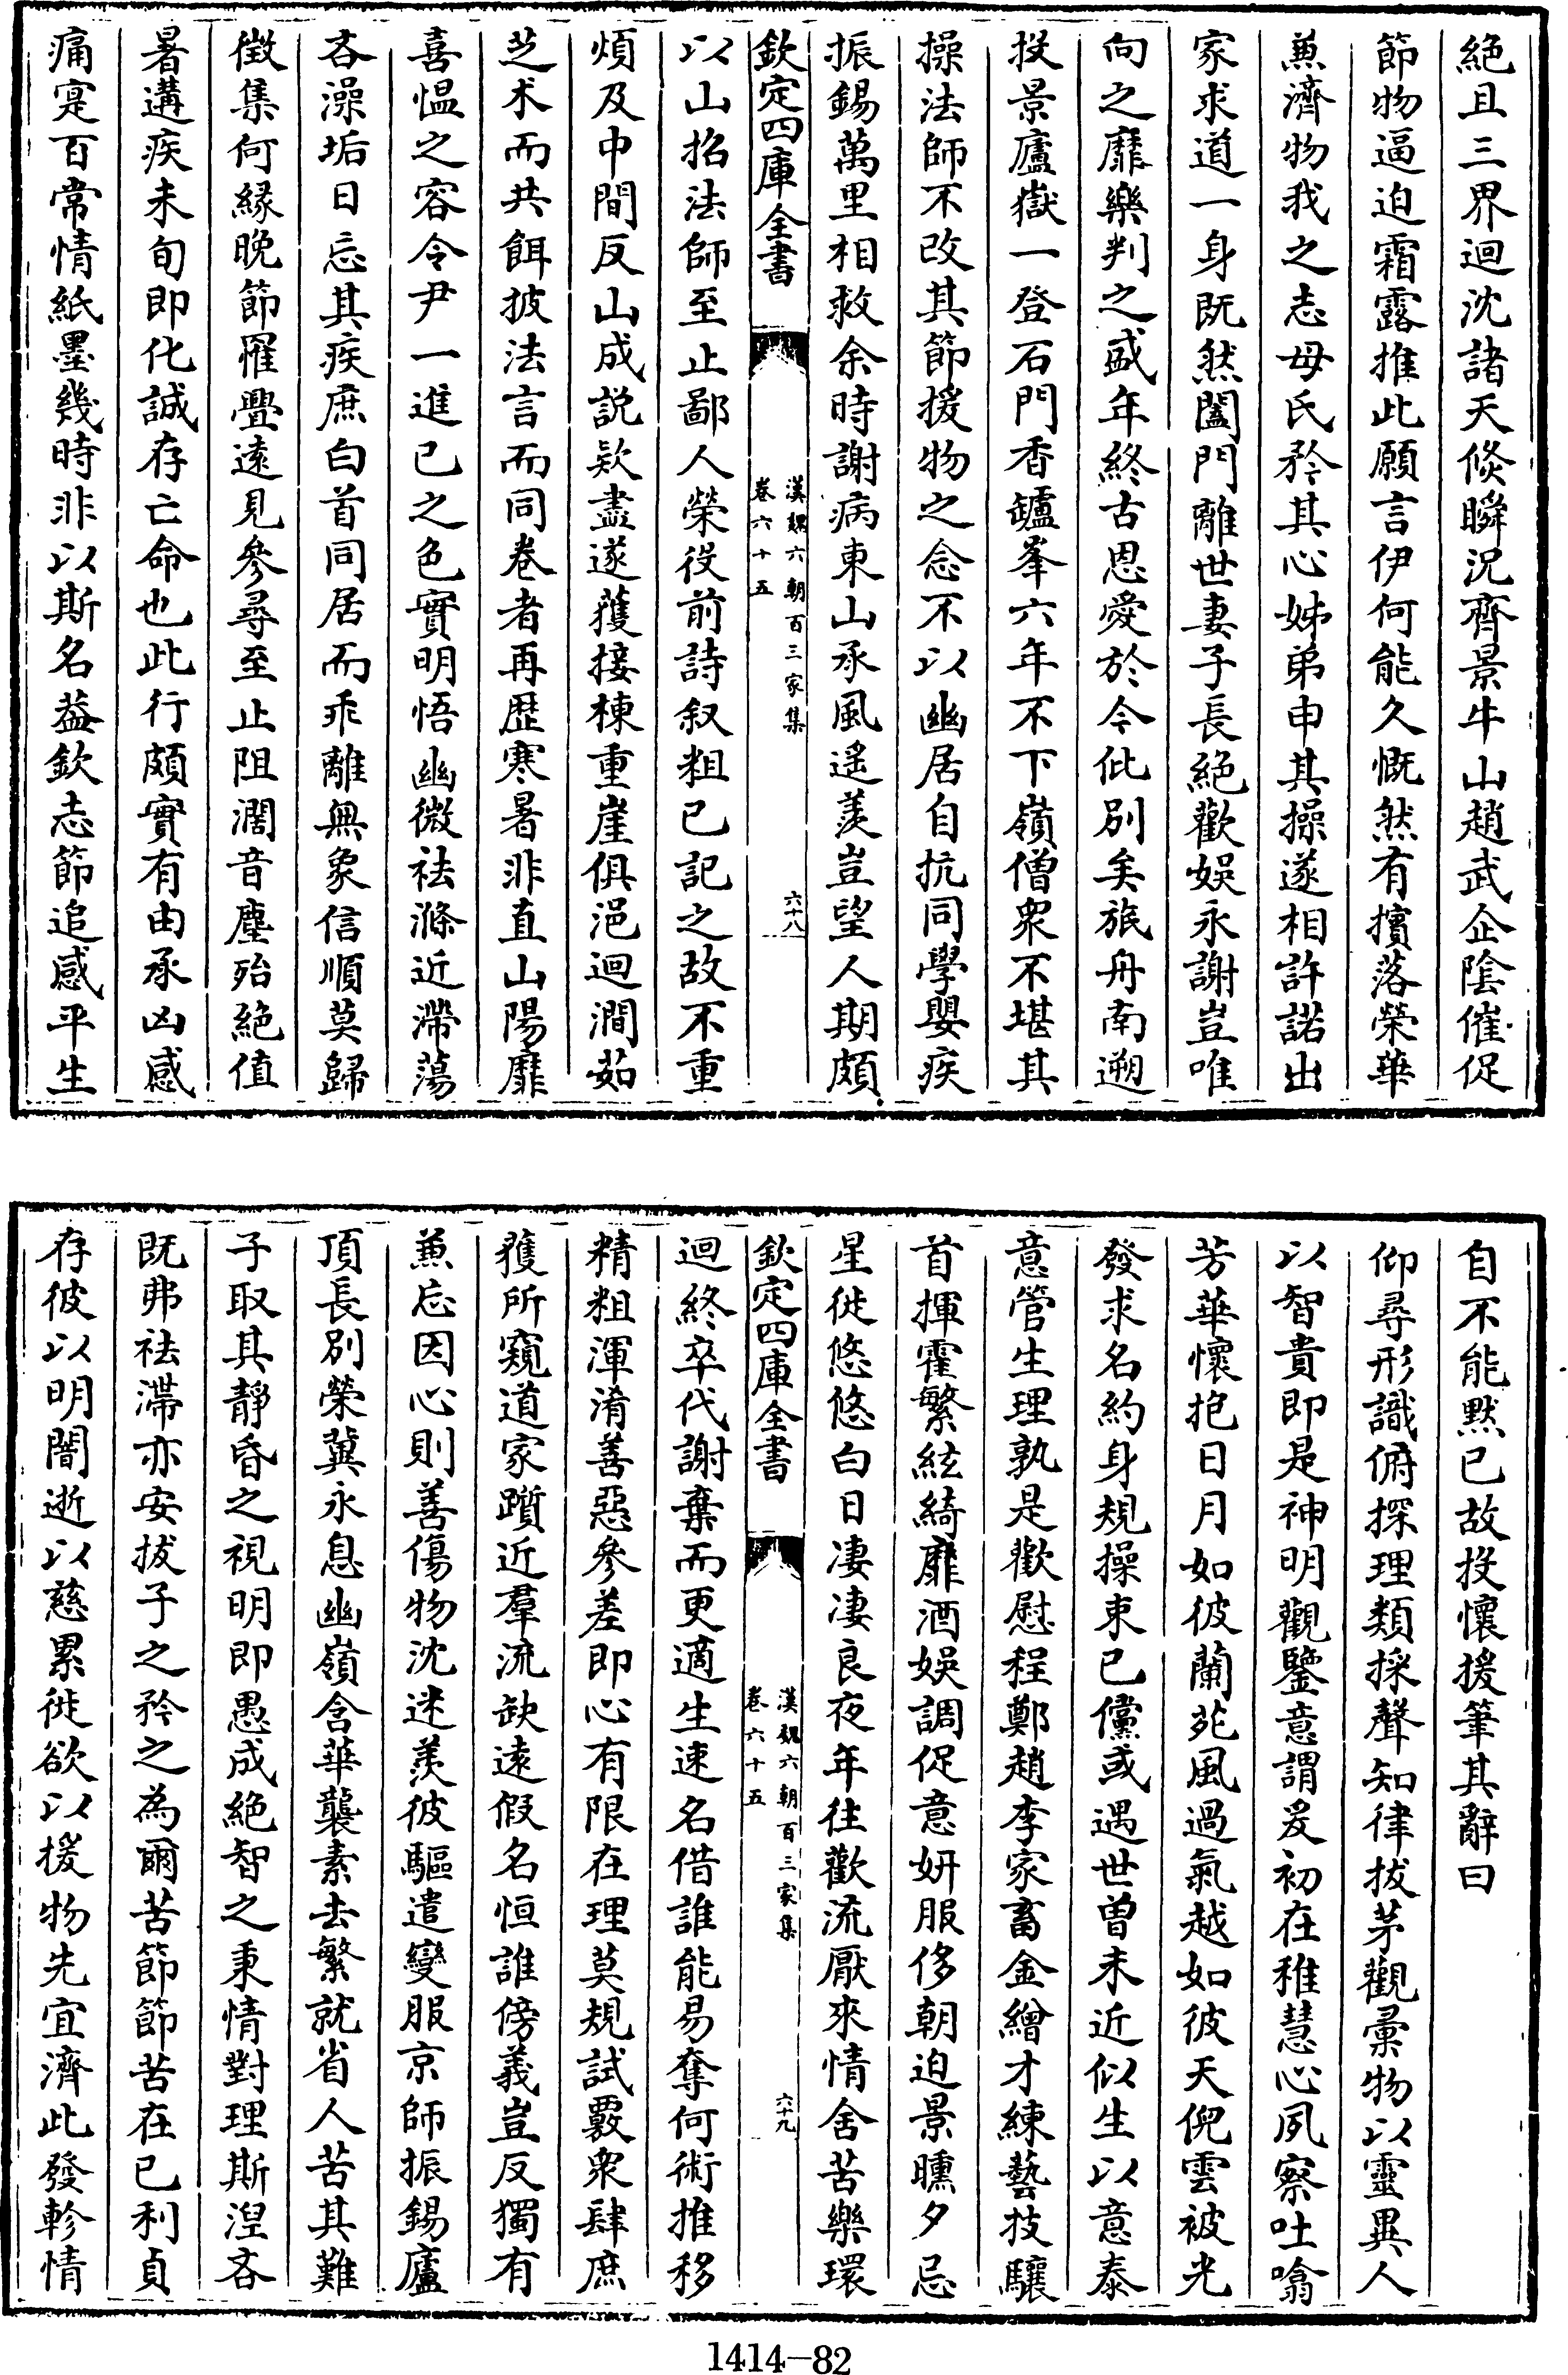 絶且三界迴沈諸天倐瞬況齊景牛山趙武企陰催促
節物逼迫霜露推此願言伊何能久慨然有擯落榮華
兼濟物我之志母氏矜其心姊弟申其操遂相許諾出
家求道一身既然闔門離世妻子長絶歡娛永謝豈唯
向之靡樂判之盛年終古恩愛於今仳別矣旅舟南遡
投景廬嶽一登石門香鑪峯六年不下嶺僧衆不堪其
操法師不改其節援物之念不以幽居自抗同學嬰疾
振錫萬里相救余時謝病東山承風遙羨豈望人期頗
欽定四庫全書
漢魏六朝百三家集
卷六十五
六十八
以山招法師至止鄙人榮役前詩叙粗已記之故不重
煩及中間反山成説欵盡遂獲接棟重崖俱浥迴澗茹
芝术而共餌披法言而同卷者再歴寒暑非直山陽靡
喜愠之容令尹一進已之色實明悟幽微祛滌近滯蕩
吝澡垢日忘其疾庶白首同居而乖離無象信順莫歸
徴集何縁晚節罹舋遠見參尋至止阻濶音塵殆絶值
暑遘疾未旬即化誠存亡命也此行頗實有由承凶感
痛寔百常情紙墨幾時非以斯名益欽志節追感平生
自不能默已故投懷援筆其辭曰
仰尋形識俯探理類採聲知律拔茅觀彙物以靈異人
以智貴即是神明觀鑒意謂爰初在稚慧心夙察吐噏
芳華懷抱日月如彼蘭苑風過氣越如彼天倪雲被光
發求名約身規操束已儻或遇世曾未近似生以意泰
意管生理孰是歡慰程鄭趙李家畜金繒才練藝技驤
首揮霍繁絃綺靡酒娛調促意妍服侈朝迫景曛夕忌
星徙悠悠白日凄凄良夜年往歡流厭來情舍苦樂環
欽定四庫全書
漢魏六朝百三家集
卷六十五
六十九
迴終卒代謝棄而更適生速名借誰能易奪何術推移
精粗渾淆善惡參差即心有限在理莫規試覈衆肆庶
獲所窺道家躓近羣流缺遠假名恒誰傍義豈反獨有
兼忘因心則善傷物沈迷羨彼驅遣變服京師振錫廬
頂長別榮冀永息幽嶺含華襲素去繁就省人苦其難
子取其靜昏之視明即愚成絶智之秉情對理斯涅吝
既弗祛滯亦安拔子之矜之為爾苦節節苦在已利貞
存彼以明闇逝以慈累徙欲以援物先宜濟此發軫情
1414—82